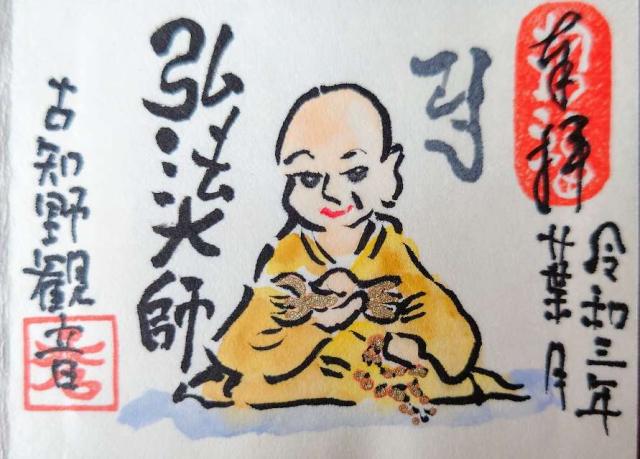 奉拝
令和三年
葉月
弘法大師
古知野観音